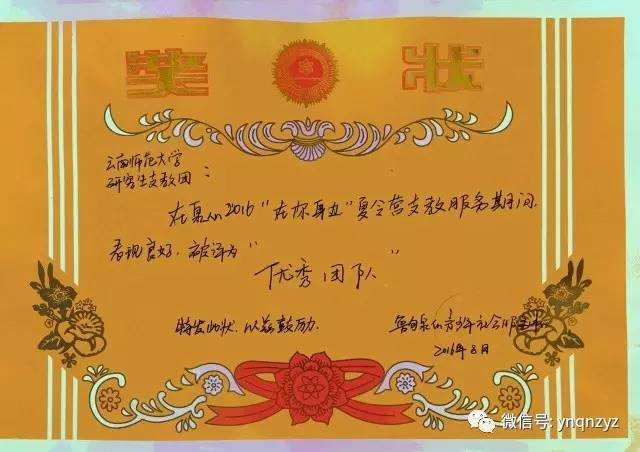 奖 状
云南师范大学
研究生支教团：
在 2016“在你身边”夏令营支教服务期间，
表现良好，被评为“
优秀团队”
特发此状，以兹鼓励．
鲁甸 青少年社会服务
2016年8月
微信号: ynqnzyz